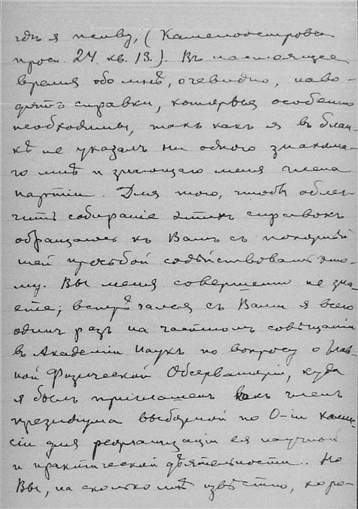 гдѣ я живу, (Каменноостровск.
просп. 24 кв. 13.). Въ настоящее
время обо мнѣ, очевидно, наво-
дятъ справки, которыя особенно
необходимы, такъ какъ я въ блан-
кѣ не указалъ ни одного знакома-
го мнѣ и знающаго меня члена
партіи. Для того, чтобы облег-
чить собираніе этихъ справокъ
обращаюсь къ Вамъ съ покорнѣй-
шей просьбой содѣйствовать это-
му. Вы меня совершенно не зна-
ете; встрѣчался съ Вами я всего
одинъ разъ на частномъ совѣщаніи
въ Академіи Наукъ по вопросу о Глав-
ной Физической Обсерваторіи, куда
я былъ приглашенъ какъ членъ
президіума выбранной по О-іи комис-
сіи для реорганизаціи ея научной
и практической дѣятельности. Но
Вы, на сколько мнѣ извѣстно, хоро-